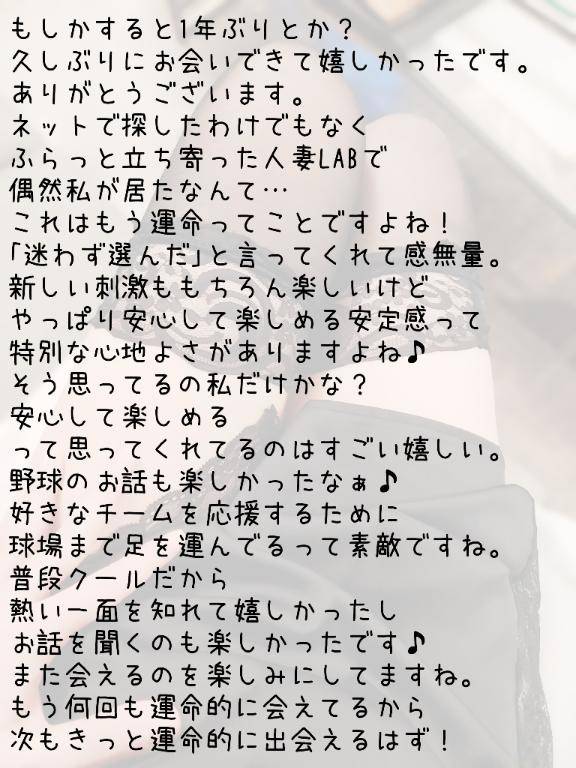 もしかすると1年ぶりとか？
久しぶりにお会いできて嬉しかったです。
ありがとうございます。
ネットで探したわけでもなく
ふらっと立ち寄った人妻LABで
偶然私が居たなんて…
これはもう運命ってことですよね！
「迷わず選んだ」と言ってくれて感無量。
新しい刺激ももちろん楽しいけど
やっぱり安心して楽しめる安定感って
特別な心地よさがありますよね♪
そう思ってるの私だけかな？
安心して楽しめる
って思ってくれてるのはすごい嬉しい。
野球のお話も楽しかったなぁ♪
好きなチームを応援するために
球場まで足を運んでるって素敵ですね。
普段クールだから
熱い一面を知れて嬉しかったし
お話を聞くのも楽しかったです♪
また会えるのを楽しみにしてますね。
もう何回も運命的に会えてるから
次もきっと運命的に出会えるはず！